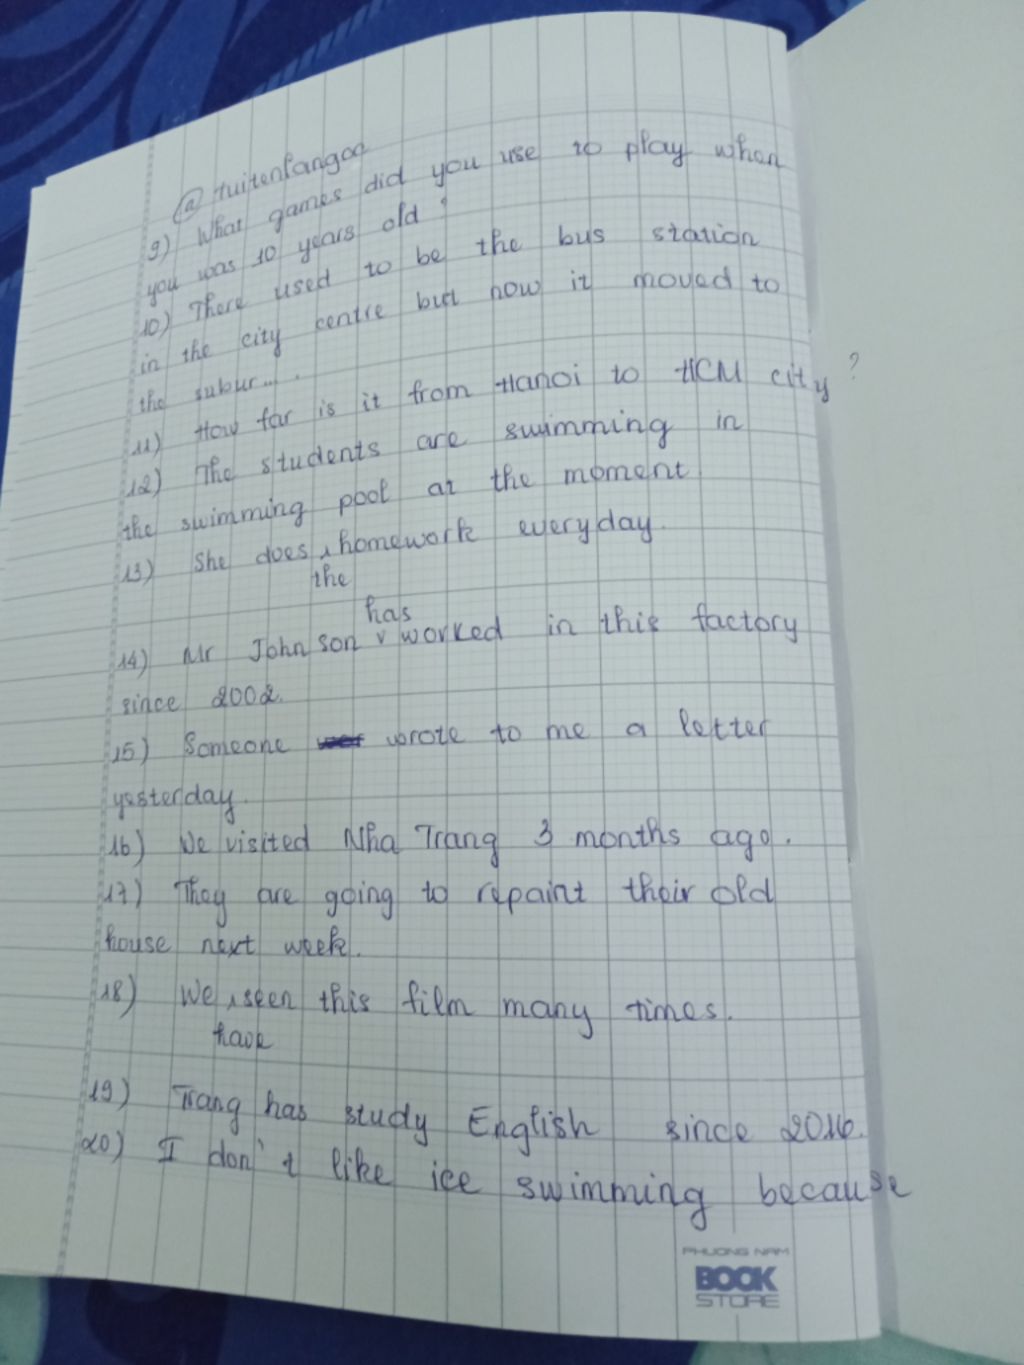 @tuitenlangoc
9) What games did you use to play when
you was 10 years old?
10) There used to be the bus station
in the city centre but now it moved to
the subur....
11) How far is it from Hanoi to HCM city?
12) The students are swimming in
the swimming pool at the moment
13) She does the homework everyday.
14) Mr Johnson has worked in this factory
since 2002.
15) Someone wrote to me a letter
yesterday.
16) We visited Nha Trang 3 months ago.
17) They are going to repaint their old
house next week.
18) We have seen this film many times.
19) Trang has study English since 2016.
20) I don't like ice swimming because
PHUONG NAM
BOOK
STORE